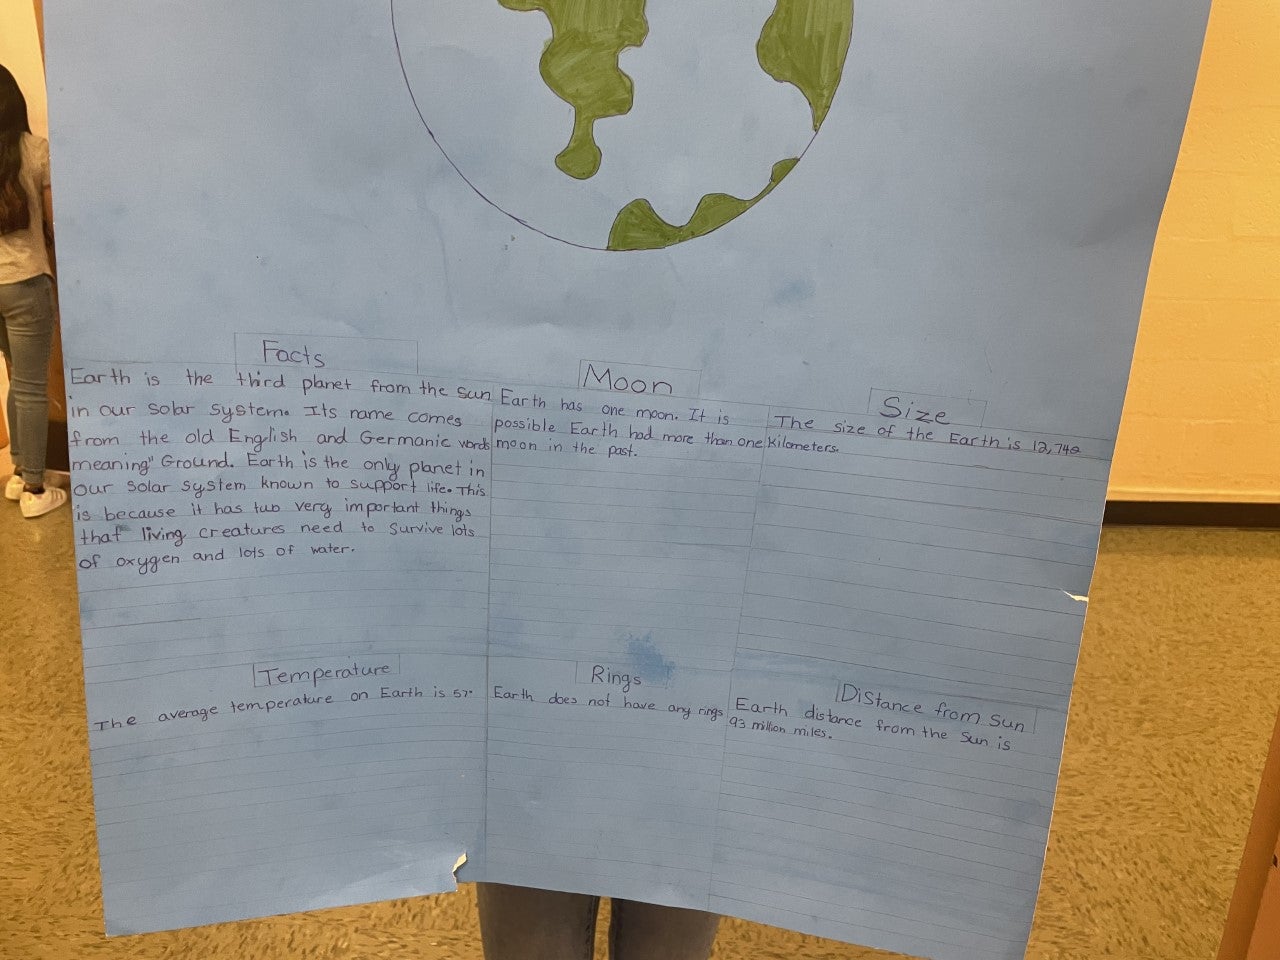 Facts
Earth is the third planet from the sun
in our solar system. Its name comes
from the old English and Germanic words
meaning" Ground. Earth is the only planet in
our solar system known to support life. This
is because it has two very important things
that living creatures need to survive lots
of oxygen and lots of water.
Moon
Earth has one moon. It is
possible Earth had more than one
moon in the past.
Size
The size of the Earth is 12,742
kilometers.
Temperature
The average temperature on Earth is 57°
Rings
Earth does not have any rings
Distance from Sun
Earth distance from the Sun is
93 million miles.